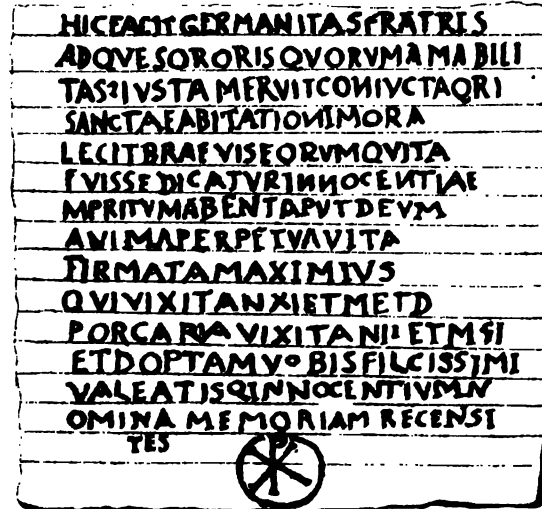 HICFACITGERMANITASFRATRIS
ADQVESORORISQVORVMAMABILI
TASIVSTAMERVITCONIVCTAQRI
SANCTAEABITATIONIMORA
LECITBRAEVISEORVMQVITA
FVISSEDICATVRINNOCENTIAE
MPRITVMABENTAPVTDEVM
ANIMAPERPETVAVITA
FIRMATAMAXIMIVS
QVIVIXITANXIETMETD
PORCARIAVIXITANIIETMSI
ETDOPTAMVOBISFILCISSIMI
VALEATISQINNOCENTIVMN
OMINAMEMORIAMRECENSI
TES